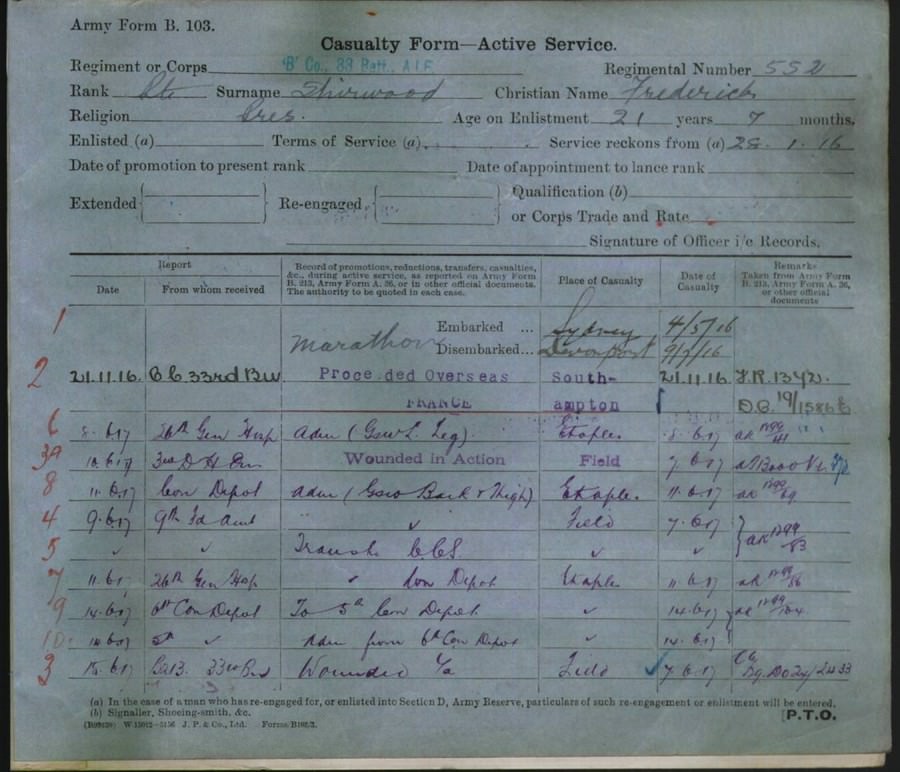 Army Form B. 103.
Casualty Form—Active Service.
Regiment or Corps 'B' Co., 33 Batt., A.I.F. Regimental Number 552
Rank Pte Surname Shirwood Christian Name Frederick
Religion Pres. Age on Enlistment 21 years 7 months.
Enlisted (a) Terms of Service (a) Service reckons from (a) 28.1.16
Date of promotion to present rank Date of appointment to lance rank
Extended Re-engaged Qualification (b)
or Corps Trade and Rate
Signature of Officer i/c Records.
Report
Date From whom received
Record of promotions, reductions, transfers, casualties, &c., during active service, as reported on Army Form B. 213, Army Form A. 36, or in other official documents. The authority to be quoted in each case.
Place of Casualty
Date of Casualty
Remarks
Taken from Army Form B. 213, Army Form A. 36, or other official documents
1 Marathon Embarked ... Sydney 4/5/16
Disembarked... Devonport 9/7/16
2 21.11.16. 33rd Bn Proceeded Overseas South- 21.11.16.
FRANCE ampton
6 8.6.17 26th Gen Hosp Adm (Gsw L. Leg). Etaples 8.6.17
3A 3rd Wounded in Action Field 7.6.17
8 11.6.17 Con Depot Adm (Gsw Back & Thigh) Etaples 11.6.17
4 9.6.17 9th Fd Amb " Field 7.6.17
5 " " Transf. C.C.S. " "
7 11.6.1 26th Gen Hosp " Con Depot Etaples 11.6.17
9 14.6.17 6th Con Depot To 5th Con Depot " 14.6.17
10 14.6.17 5th " Adm from 6th Con Depot " 14.6.17
3 15.6.17 33rd Bn Wounded Field 7.6.17
(a) In the case of a man who has re-engaged for, or enlisted into Section D, Army Reserve, particulars of such re-engagement or enlistment will be entered.
(b) Signaller, Shoeing-smith, &c.
J. P. & Co., Ltd. Forms/B103/3. [P.T.O.